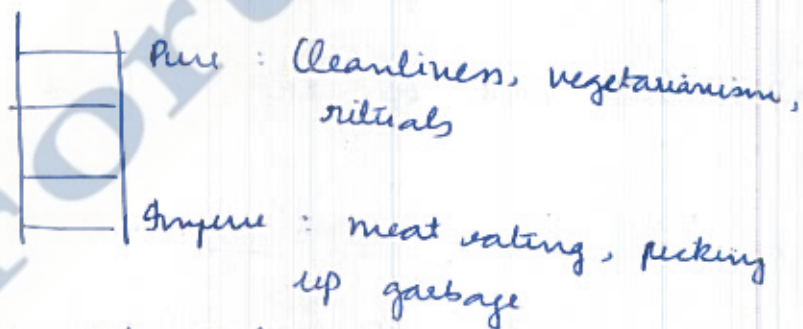 Pure : Cleanliness, vegetarianism,
rituals
Impure : meat eating, picking
up garbage